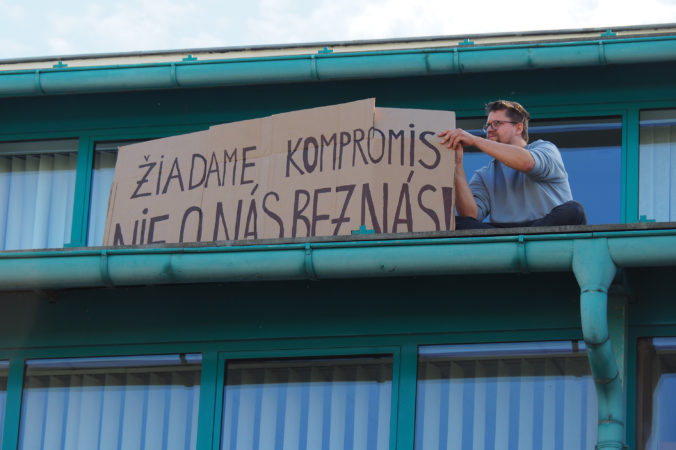 ŽIADAME KOMPROMIS
NIE O NÁS BEZ NÁS!